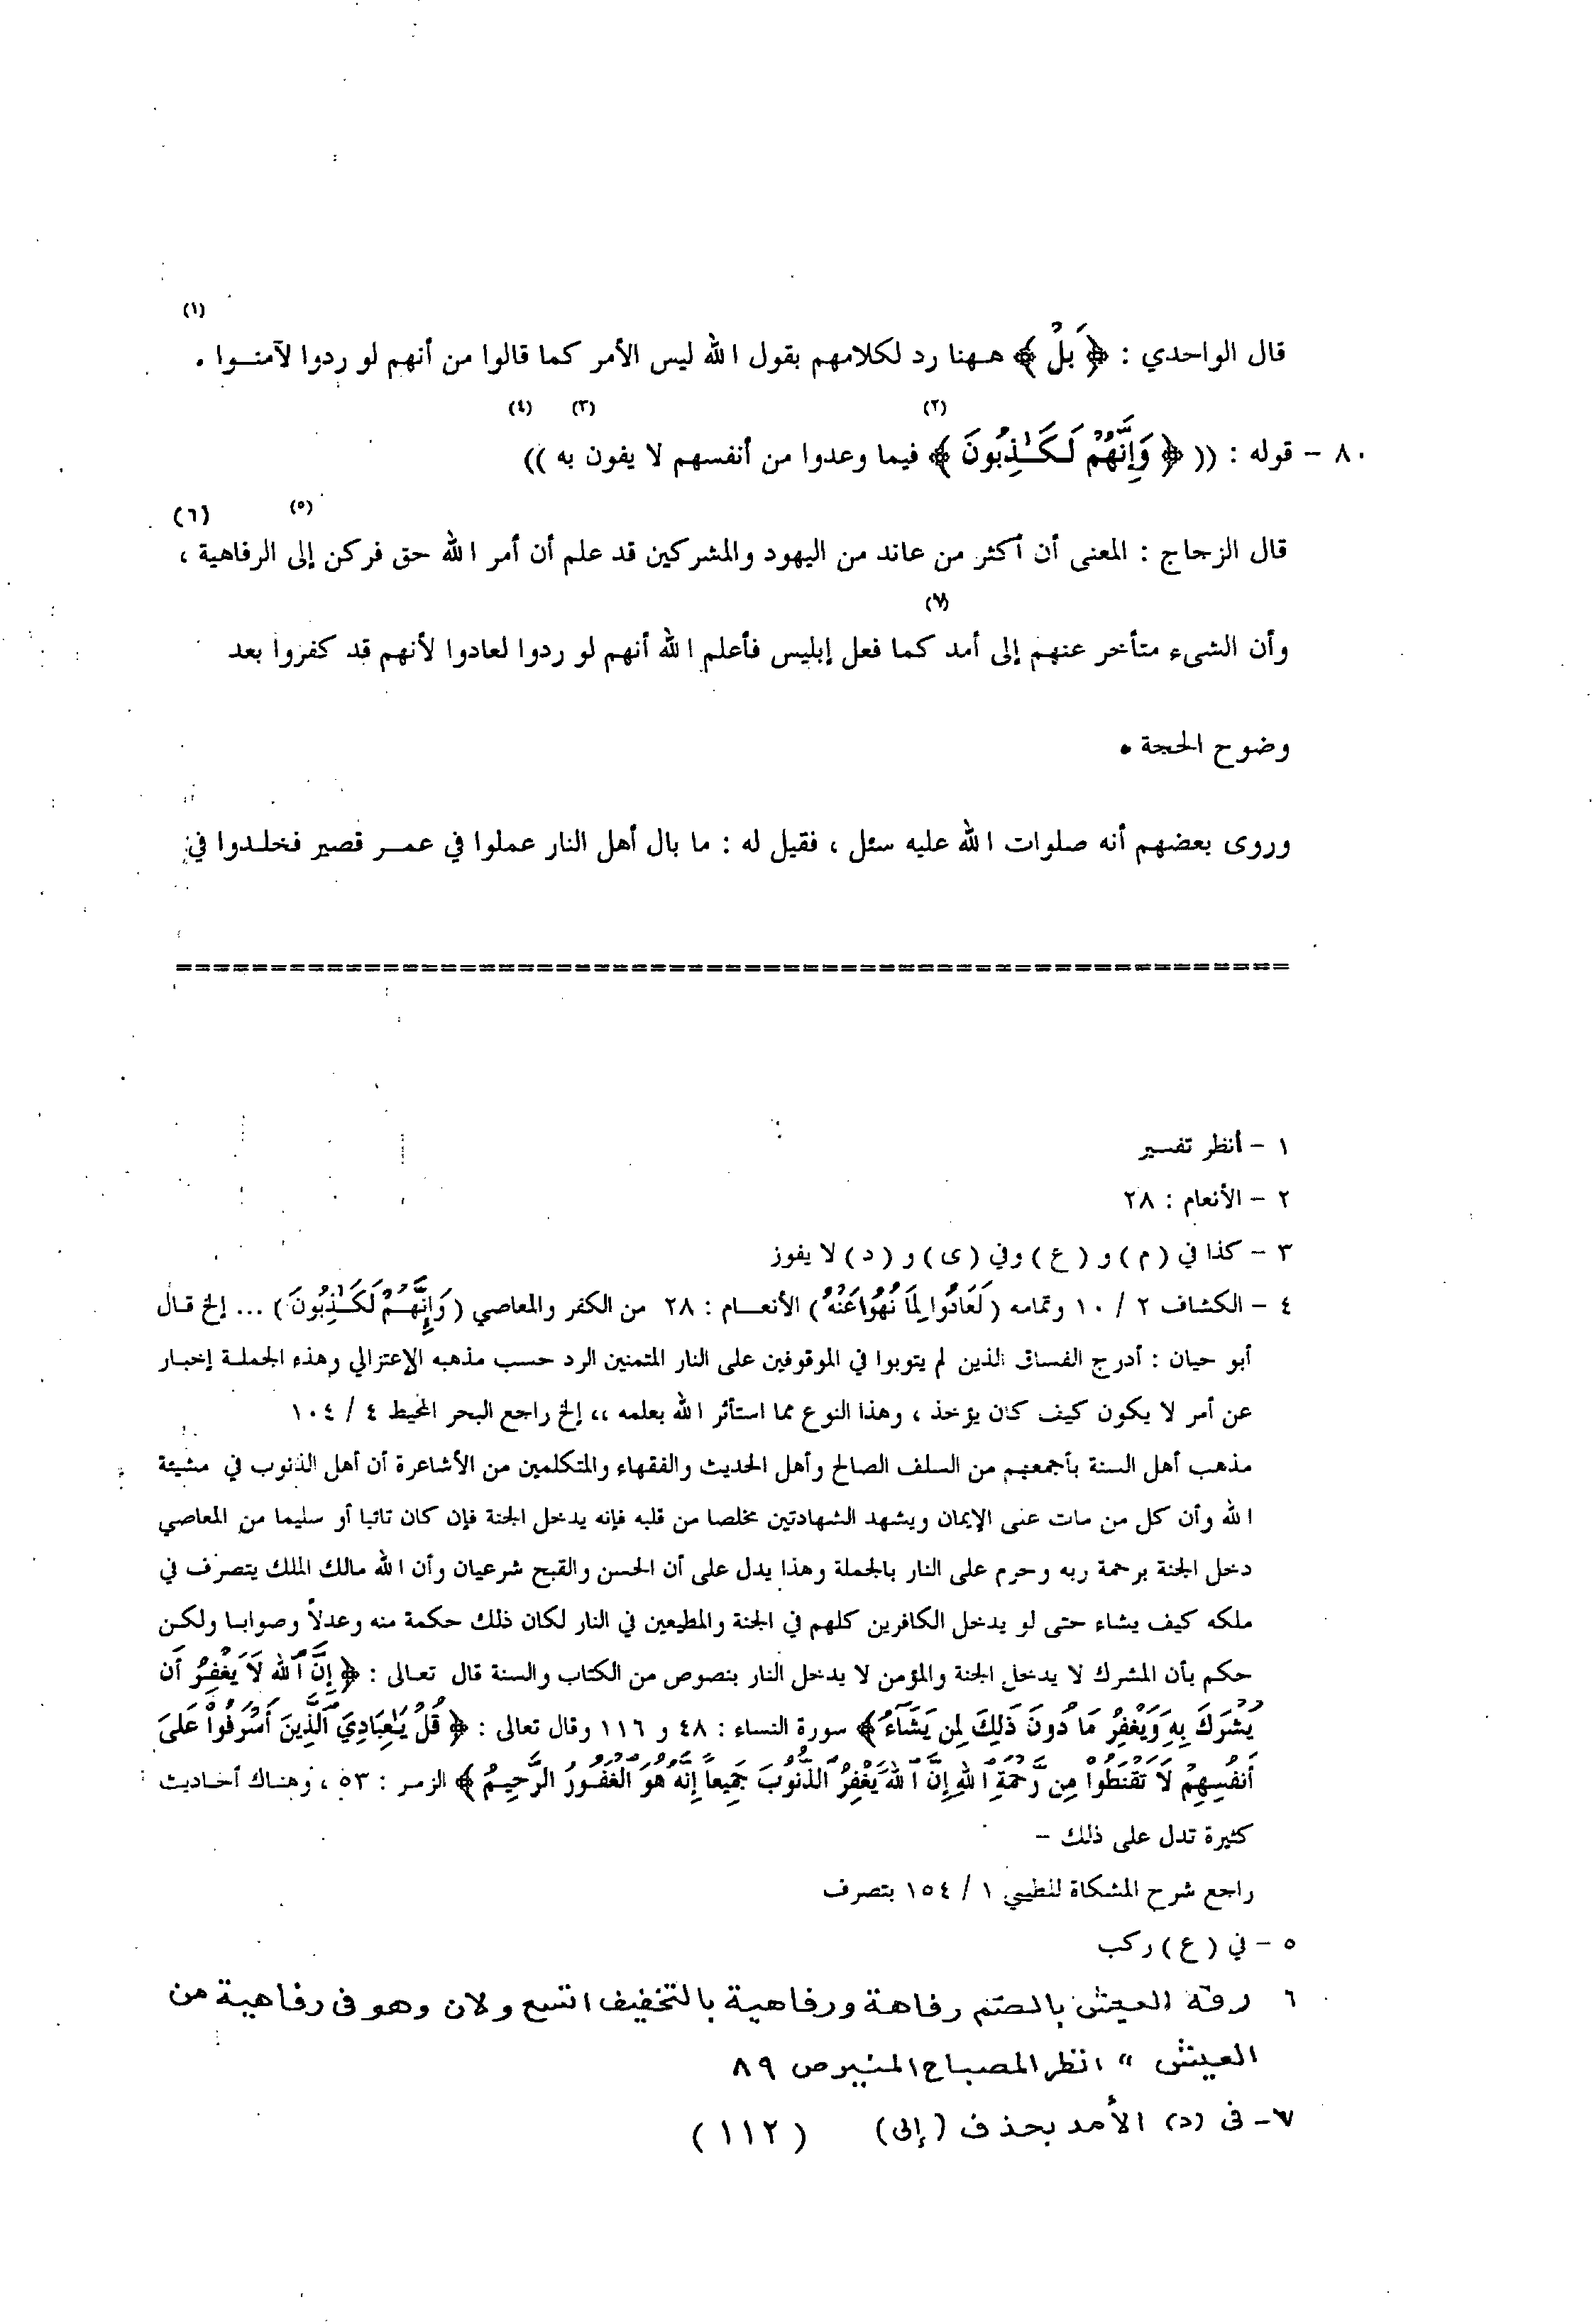 (١)
قال الواحدي : ﴿ بَلْ ﴾ ههنا رد لكلامهم بقول الله ليس الأمر كما قالوا من أنهم لو ردوا لآمنــوا .
(٢) (٣) (٤)
٨٠ - قوله : (( ﴿ وَإِنَّهُمْ لَكَـٰذِبُونَ ﴾ فيما وعدوا من أنفسهم لا يفون به ))
(٥) (٦)
قال الزجاج : المعنى أن أكثر من عاند من اليهود والمشركين قد علم أن أمر الله حق فركن إلى الرفاهية ،
(٧)
وأن الشىء متأخر عنهم إلى أمد كما فعل إبليس فأعلم الله أنهم لو ردوا لعادوا لأنهم قد كفروا بعد
وضوح الحجة .
وروى بعضهم أنه صلوات الله عليه سئل ، فقيل له : ما بال أهل النار عملوا في عمــر قصير فخلـدوا في
================================================
١ - أنظر تفسير
٢ - الأنعام : ٢٨
٣ - كذا في ( م ) و ( ع ) وفي ( ى ) و ( د ) لا يفوز
٤ - الكشاف ٢ / ١٠ وتمامه ( لَعَادُوا لِمَا نُهُوا عَنْهُ ) الأنعــام : ٢٨ من الكفر والمعاصي ( وَإِنَّهُمْ لَكَـٰذِبُونَ ) ... إلخ قـال
أبو حيان : أدرج الفساق الذين لم يتوبوا في الموقوفين على النار المتمنين الرد حسب مذهبه الإعتزالي وهذه الجملـة إخبـار
عن أمر لا يكون كيف كان يؤخذ ، وهذا النوع مما استأثر الله بعلمه ،، إلخ راجع البحر المحيط ٤ / ١٠٤
مذهب أهل السنة بأجمعهم من السلف الصالح وأهل الحديث والفقهاء والمتكلمين من الأشاعرة أن أهل الذنوب في مشيئة
الله وأن كل من مات على الإيمان ويشهد الشهادتين مخلصا من قلبه فإنه يدخل الجنة فإن كان تائبا أو سليما من المعاصي
دخل الجنة برحمة ربه وحرم على النار بالجملة وهذا يدل على أن الحسن والقبح شرعيان وأن الله مالك الملك يتصرف في
ملكه كيف يشاء حتى لو يدخل الكافرين كلهم في الجنة والمطيعين في النار لكان ذلك حكمة منه وعدلاً وصوابـا ولكـن
حكم بأن المشرك لا يدخل الجنة والمؤمن لا يدخل النار بنصوص من الكتاب والسنة قال تعـالى : ﴿ إِنَّ ٱللَّهَ لَا يَغْفِرُ أَن
يُشْرَكَ بِهِ وَيَغْفِرُ مَا دُونَ ذَٰلِكَ لِمَن يَشَآءُ ﴾ سورة النساء : ٤٨ و ١١٦ وقال تعالى : ﴿ قُلْ يَـٰعِبَادِيَ ٱلَّذِينَ أَسْرَفُوا۟ عَلَىٰ
أَنفُسِهِمْ لَا تَقْنَطُوا۟ مِن رَّحْمَةِ ٱللَّهِ إِنَّ ٱللَّهَ يَغْفِرُ ٱلذُّنُوبَ جَمِيعاً إِنَّهُ هُوَ ٱلْغَفُورُ ٱلرَّحِيمُ ﴾ الزمـر : ٥٣ ، وهنـاك أحـاديث
كثيرة تدل على ذلك -
راجع شرح المشكاة للطيبي ١ / ١٥٤ بتصرف
٥ - في ( ع ) ركب
٦ رفه العيش بالضم رفاهة ورفاهية بالتخفيف اتسع ولان وهو فى رفاهية من
العيش " انظر المصباح المنير ص ٨٩
٧ - فى (د) الأمد بحذف (إلى)
(١١٢)